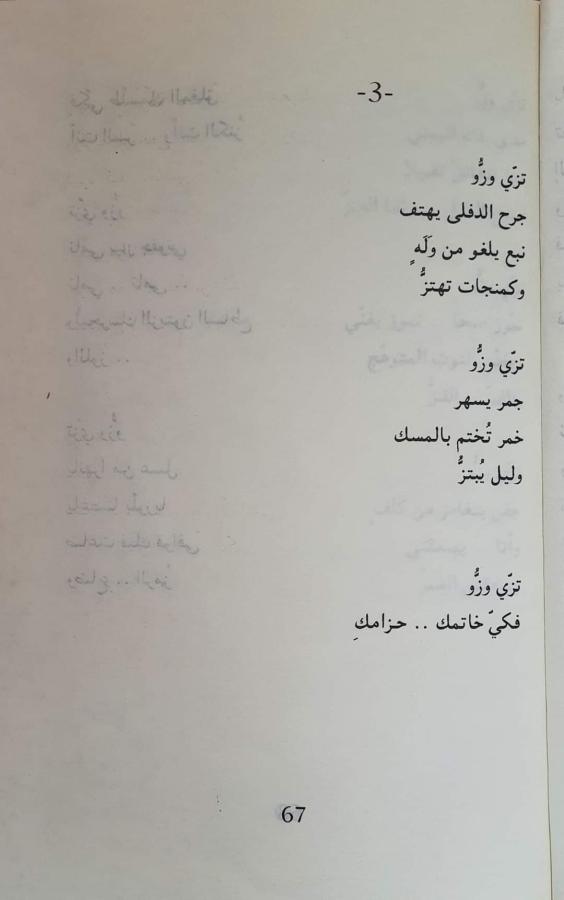 -3-
تزّي وزُّو
جرح الدفلى يهتف
نبع يلغو من وَلَهٍ
وكمنجات تهتزُّ
تزّي وزُّو
جمر يسهر
خمر تُختم بالمسك
وليل يُبتزُّ
تزّي وزُّو
فكيّ خاتمك .. حزامكِ
67